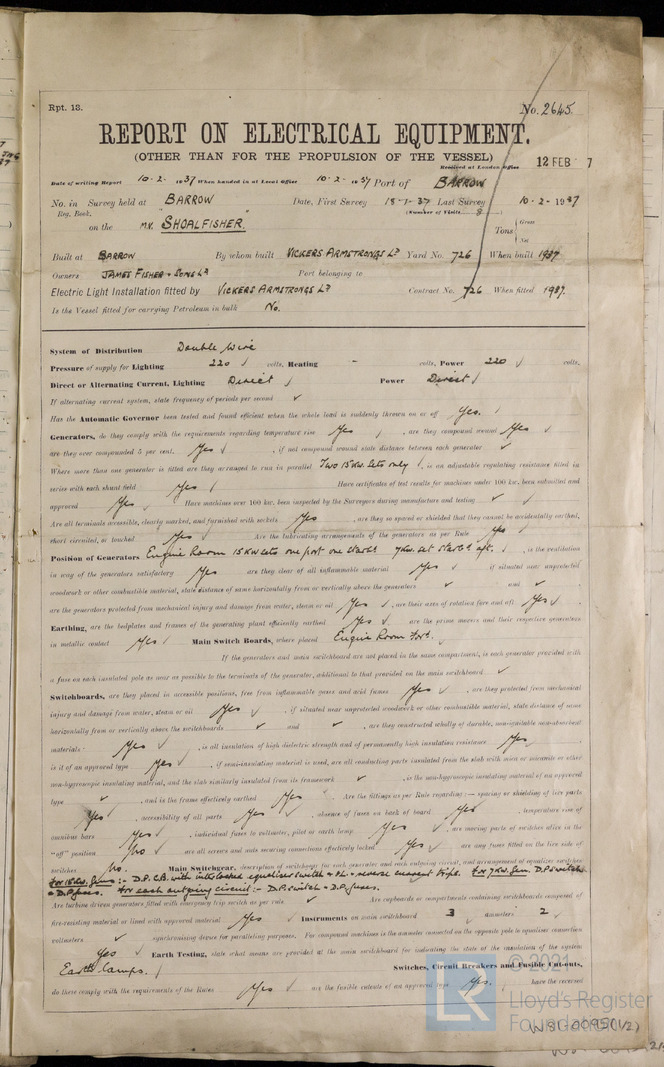 Rpt. 13.
No. 2645.
REPORT ON ELECTRICAL EQUIPMENT.
(OTHER THAN FOR THE PROPULSION OF THE VESSEL)
Received at London Office 12 FEB 7
Date of writing Report 10-2-1937 When handed in at Local Office 10-2-1937 Port of BARROW
No. in Survey held at BARROW Date, First Survey 18-1-37 Last Survey 10-2-1937
Reg. Book. (Number of Visits 8)
on the M.V. SHOALFISHER. Tons { Gross
Net
Built at BARROW By whom built VICKERS ARMSTRONGS Ld Yard No. 726 When built 1937.
Owners JAMES FISHER & SONS Ld Port belonging to
Electric Light Installation fitted by VICKERS ARMSTRONGS Ld Contract No. 726 When fitted 1937.
Is the Vessel fitted for carrying Petroleum in bulk No.
System of Distribution Double Wire
Pressure of supply for Lighting 220 volts, Heating - volts, Power 220 volts,
Direct or Alternating Current, Lighting Direct Power Direct
If alternating current system, state frequency of periods per second
Has the Automatic Governor been tested and found efficient when the whole load is suddenly thrown on or off Yes.
Generators, do they comply with the requirements regarding temperature rise Yes, are they compound wound Yes
are they over compounded 5 per cent. Yes, if not compound wound state distance between each generator
Where more than one generator is fitted are they arranged to run in parallel Two 15 KW. sets only, is an adjustable regulating resistance fitted in
series with each shunt field Yes Have certificates of test results for machines under 100 kw. been submitted and
approved Yes Have machines over 100 kw. been inspected by the Surveyors during manufacture and testing
Are all terminals accessible, clearly marked, and furnished with sockets Yes, are they so spaced or shielded that they cannot be accidentally earthed,
short circuited, or touched Yes Are the lubricating arrangements of the generators as per Rule Yes
Position of Generators Engine Room 15 KW sets one port one starbd 7 KW. set starbd aft., is the ventilation
in way of the generators satisfactory Yes are they clear of all inflammable material Yes if situated near unprotected
woodwork or other combustible material, state distance of same horizontally from or vertically above the generators and
are the generators protected from mechanical injury and damage from water, steam or oil Yes, are their axes of rotation fore and aft. Yes
Earthing, are the bedplates and frames of the generating plant efficiently earthed Yes are the prime movers and their respective generators
in metallic contact Yes Main Switch Boards, where placed Engine Room For'd.
If the generators and main switchboard are not placed in the same compartment, is each generator provided with
a fuse on each insulated pole as near as possible to the terminals of the generator, additional to that provided on the main switchboard
Switchboards, are they placed in accessible positions, free from inflammable gases and acid fumes Yes, are they protected from mechanical
injury and damage from water, steam or oil Yes, if situated near unprotected woodwork or other combustible material, state distance of same
horizontally from or vertically above the switchboards and, are they constructed wholly of durable, non-ignitable non-absorbent
materials Yes, is all insulation of high dielectric strength and of permanently high insulation resistance Yes,
is it of an approved type Yes, if semi-insulating material is used, are all conducting parts insulated from the slab with mica or micanite or other
non-hygroscopic insulating material, and the slab similarly insulated from its framework, is the non-hygroscopic insulating material of an approved
type, and is the frame effectively earthed Yes Are the fittings as per Rule regarding:— spacing or shielding of live parts
Yes, accessibility of all parts Yes, absence of fuses on back of board Yes, temperature rise of
omnibus bars Yes, individual fuses to voltmeter, pilot or earth lamp Yes, are moving parts of switches alive in the
"off" position No are all screws and nuts securing connections effectively locked Yes are any fuses fitted on the live side of
switches No. Main Switchgear, description of switchgear for each generator and each outgoing circuit, and arrangement of equalizer switches
For 15 KW. Gens:- D.P. C.B. with interlocked equaliser switch & o/l + reverse current trips. For 7 KW. Gen. D.P. switch
& D.P. fuses. For each outgoing circuit:- D.P. switch & D.P. fuses.
Are turbine driven generators fitted with emergency trip switch as per rule Are cupboards or compartments containing switchboards composed of
fire-resisting material or lined with approved material Yes Instruments on main switchboard 3 ammeters 2
voltmeters synchronising device for paralleling purposes. For compound machines is the ammeter connected on the opposite pole to equalizer connection
Yes Earth Testing, state what means are provided at the main switchboard for indicating the state of the insulation of the system
Earth lamps. Switches, Circuit Breakers and Fusible Cut-outs,
do these comply with the requirements of the Rules Yes are the fusible cutouts of an approved type Yes. have the reversed
© 2021
LR
Lloyd's Register
Foundation
W81-0095(1/2)